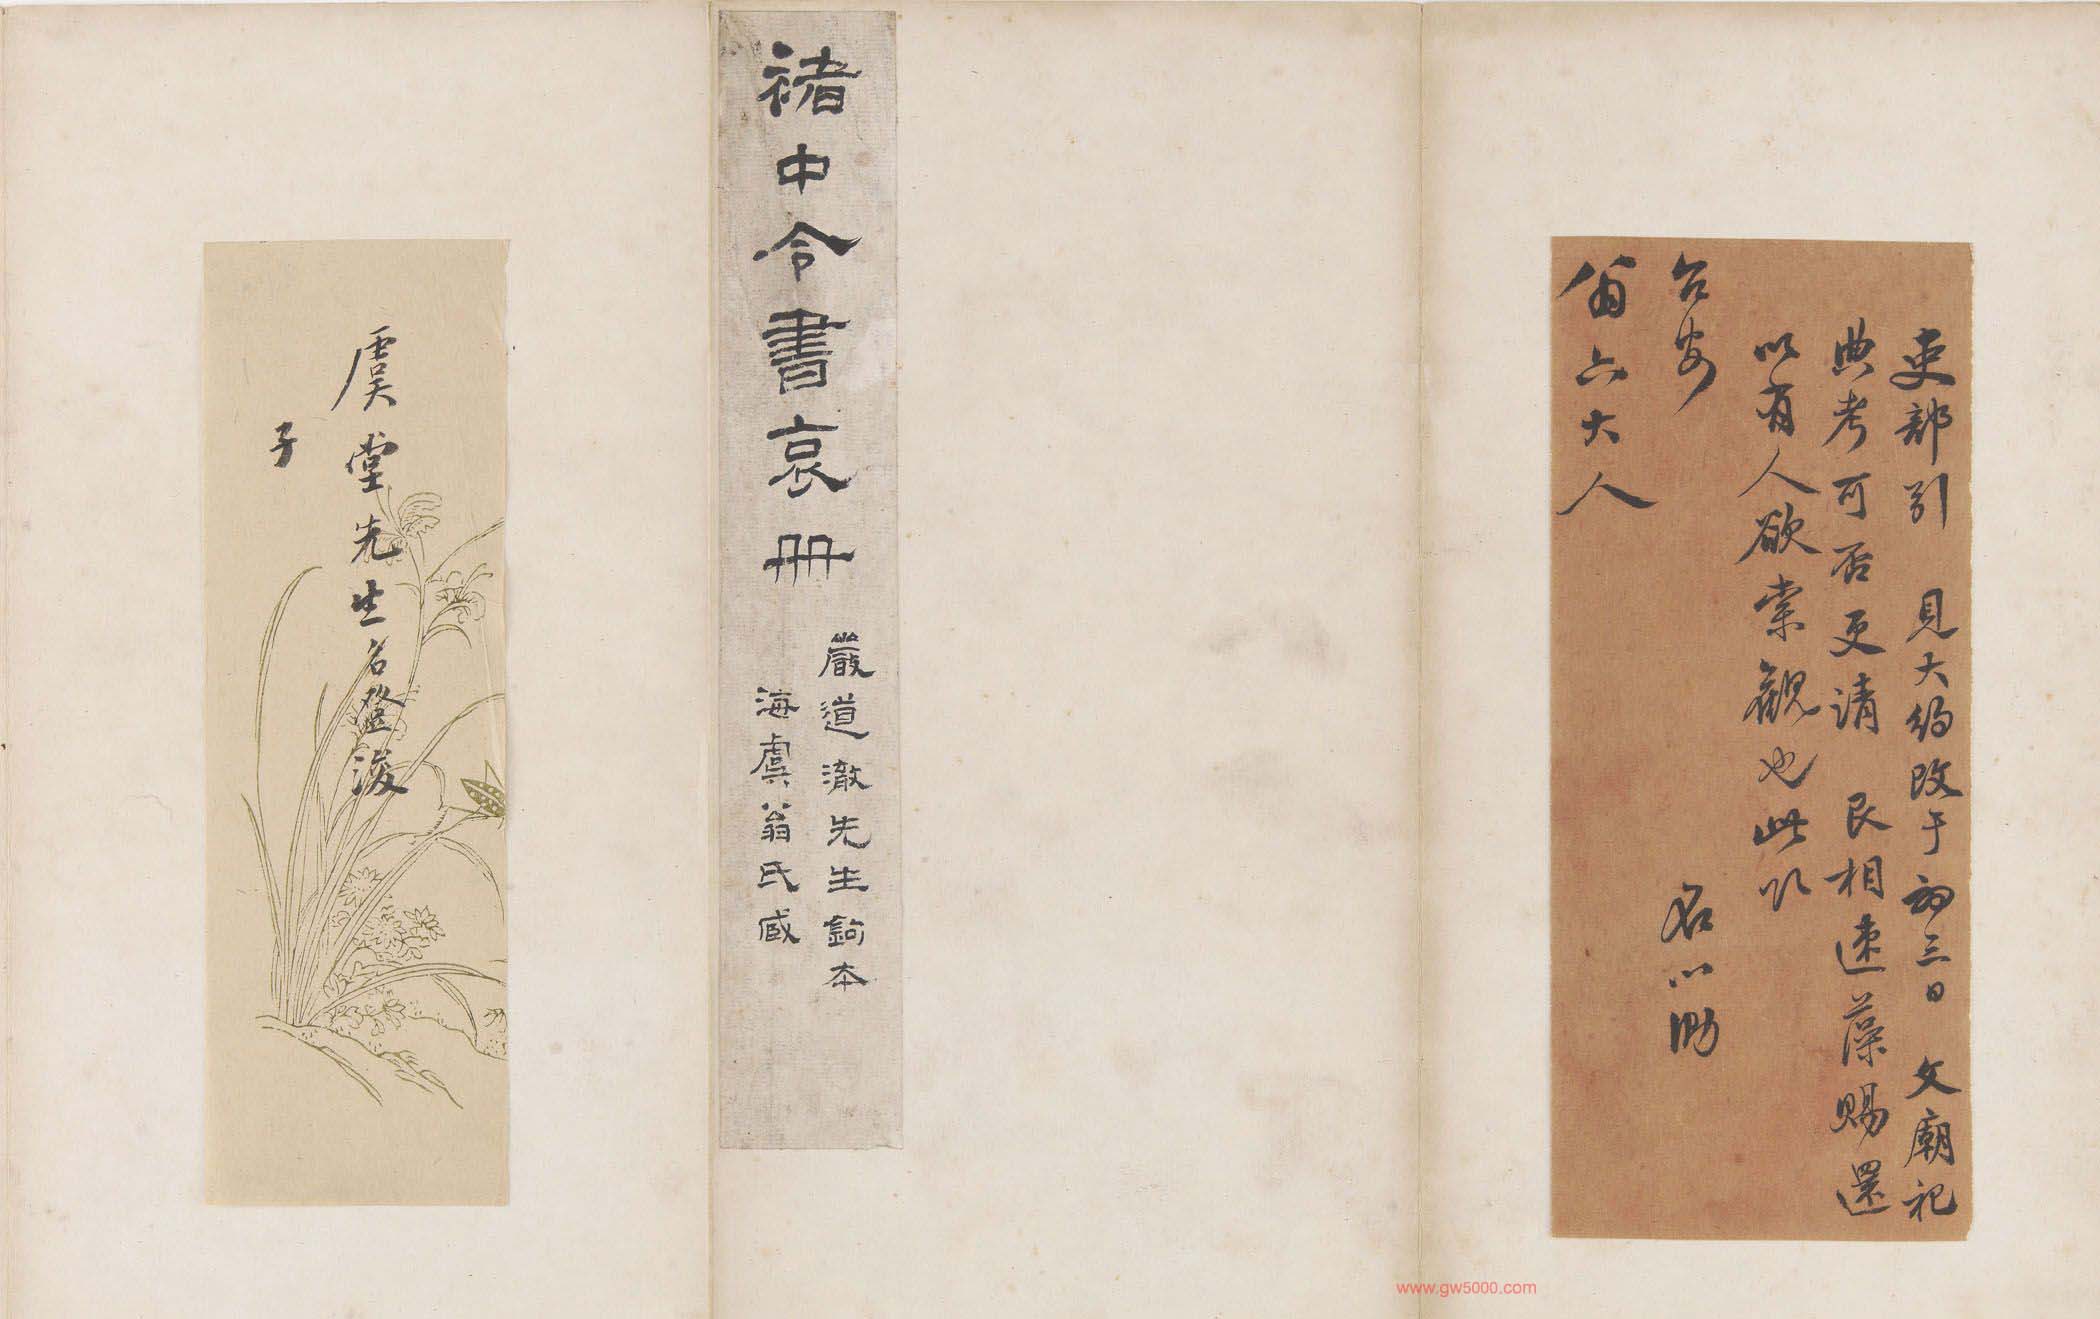 吏部引 見大約改于初三日 文廟祀
典考可否更請 艮相速藻賜還
以有人欲索觀也此以
台安 名心泐
翁六大人
褚中令書哀冊
嚴道澈先生鉤本
海虞翁氏臧
虞堂先生名登浚
子
www.gw5000.com